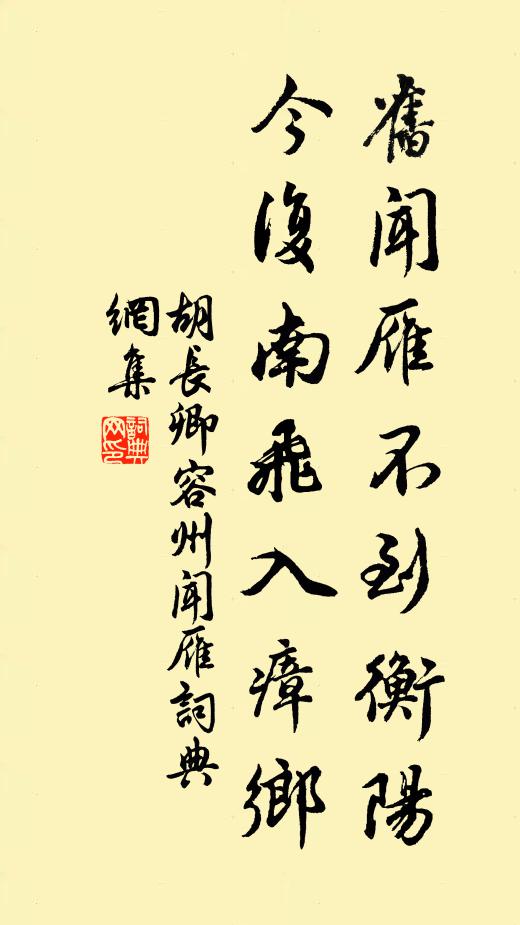 舊聞雁不到衡陽
今復南飛入瘴鄉
胡長卿容州聞雁詞典
網集
詞典
网印